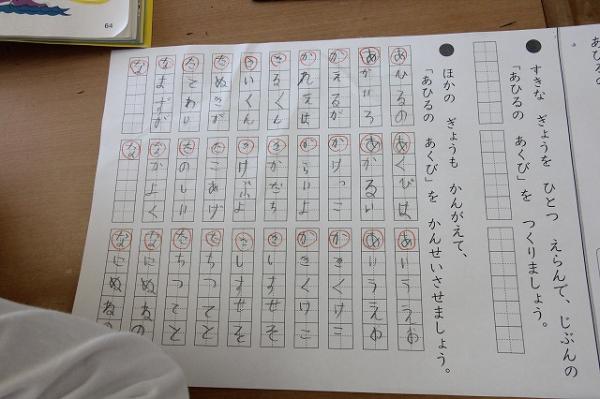 あひるの
すきな ぎょうを ひとつ えらんで、じぶんの
「あひるの あくび」を つくりましょう。
ほかの ぎょうも かんがえて、
「あひるの あくび」を かんせいさせましょう。
あひるの あくびは あいうえお
あかいろ あかるい あいうえお
かえるが かけっこ かきくけこ
かれえは からいよ かきくけこ
さるくん さかだち さしすせそ
さいくん さけぶよ さしすせそ
たぬきが たこあげ たちつてと
たのしい たちつてと
なまずが なかよく なにぬねの
な な なにぬね
64